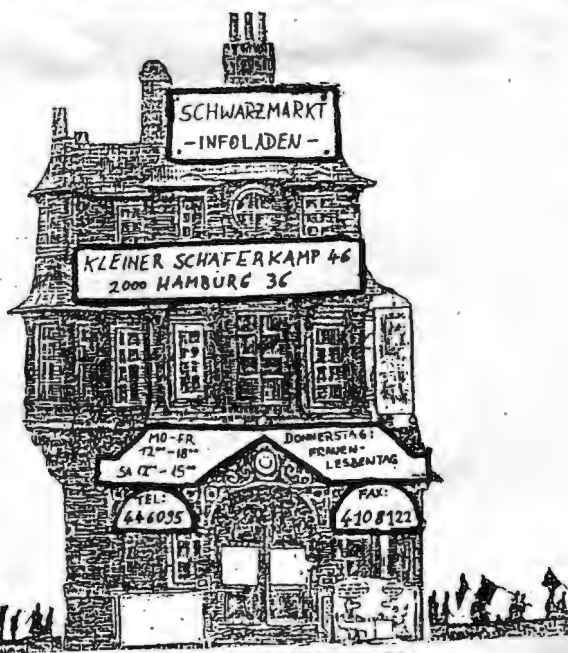 SCHWARZMARKT
- INFOLADEN -
KLEINER SCHÄFERKAMP 46
2000 HAMBURG 36
MO-FR
12⁰⁰-18⁰⁰
SA 12⁰⁰-15⁰⁰
DONNERSTAG:
FRAUEN-
LESBENTAG
TEL:
446095
FAX:
4108122